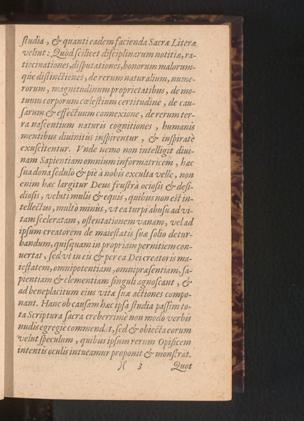 studia, & quanti eadem facienda Sacræ Literæ
velint: Quod scilicet disciplinarum notitiæ, ra-
tiocinationes, disputationes, bonorum malorum-
que distinctiones, de rerum naturalium, nume-
rorum, magnitudinum proprietatibus, de mo-
tuum corporum cælestium certitudine, de cau-
sarum & effectuum connexione, de rerum ter-
ra nascentium naturis cognitiones, humanis
mentibus divinitus inspirentur, & inspiratæ
exuscitentur. Unde nemo non intelligit divi-
nam Sapientiam omnium informatricem, hæc
sua dona sedulo & piè à nobis exculta velle, non
enim hæc largitur Deus frustrà ociosis & desi-
diosis, veluti mulis & equis, quibus non est in-
tellectus, multò minus, ut ea turpi abusu ad vi-
tam sceleratam, ostentationem vanam, vel ad
ipsum creatorem de maiestatis suæ solio detur-
bandum, quisquam in propriam pernitiem con-
vertat, sed ut in eis & per ea Dei creatoris ma-
iestatem, omnipotentiam, omnipræsentiam, sa-
pientiam & clementiam singuli agnoscant, &
ad beneplacitum eius vitæ suæ actiones compo-
nant. Hanc ob causam hæc ipsa studia passim to-
ta Scriptura sacra creberrimè non modo verbis
nudis egregiè commendat, sed & obiecta eorum
velut speculum, quibus ipsum rerum Opificem
intentis oculis intueamur proponit & monstrat.
)( 3 Quot